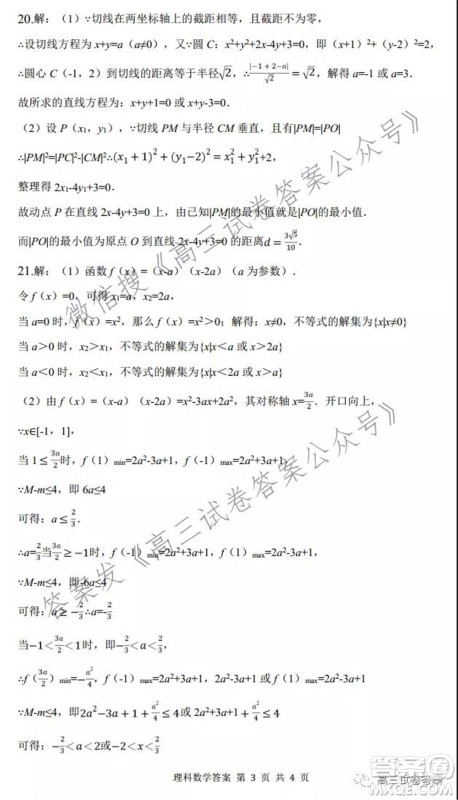 20.解：（1）∵切线在两坐标轴上的截距相等，且截距不为零，
∴设切线方程为 x+y=a（a≠0），又∵圆 C：x²+y²+2x-4y+3=0，即（x+1）²+（y-2）²=2，
∴圆心 C（-1，2）到切线的距离等于半径√2，∴|−1+2−a|/√2=√2，解得 a=-1 或 a=3．
故所求的直线方程为：x+y+1=0 或 x+y-3=0．
（2）设 P（x₁，y₁），∵切线 PM 与半径 CM 垂直，且有|PM|=|PO|
∴|PM|²=|PC|²-|CM|²∴(x₁+1)²+(y₁−2)²=x₁²+y₁²+2，
整理得 2x₁-4y₁+3=0．
故动点 P 在直线 2x-4y+3=0 上，由已知|PM|的最小值就是|PO|的最小值．
而|PO|的最小值为原点 O 到直线 2x-4y+3=0 的距离d=3√5/10．
21.解：（1）函数 f（x）=（x-a）（x-2a）（a 为参数）．
令 f（x）=0，可得 x₁=a，x₂=2a，
当 a=0 时，f（x）=x²，那么 f（x）=x²＞0；解得：x≠0，不等式的解集为{x|x≠0}
当 a＞0 时，x₂＞x₁，不等式的解集为{x|x＜a 或 x＞2a}
当 a＜0 时，x₂＜x₁，不等式的解集为{x|x＜2a 或 x＞a}
（2）由 f（x）=（x-a）（x-2a）=x²-3ax+2a²，其对称轴 x=3a/2．开口向上，
∵x∈[-1，1]，
当 1≤3a/2时，f（1）min=2a²-3a+1，f（-1）max=2a²+3a+1，
∵M-m≤4，即 6a≤4
可得：a≤2/3．
∴a=2/3当3a/2≥−1时，f（-1）min=2a²+3a+1，f（1）max=2a²-3a+1，
∵M-m≤4，即-6a≤4
可得：a≥−2/3∴a=-2/3
当−1<3a/2<1时，即−2/3<a<2/3，
∴f（3a/2）min=−a²/4，f（-1）max=2a²+3a+1，2a²-3a+1 或 f（1）max=2a²-3a+1
∵M-m≤4，即2a²−3a+1+a²/4≤4或 2a²+3a+1+a²/4≤4
可得：−2/3<a<2/3或−2/3<a<2/3
理科数学答案 第 3 页 共 4 页
微信搜《高三试卷答案公众号》
答案发《高三试卷答案公众号》
高三试卷答案
答案圈
MXQE.COM